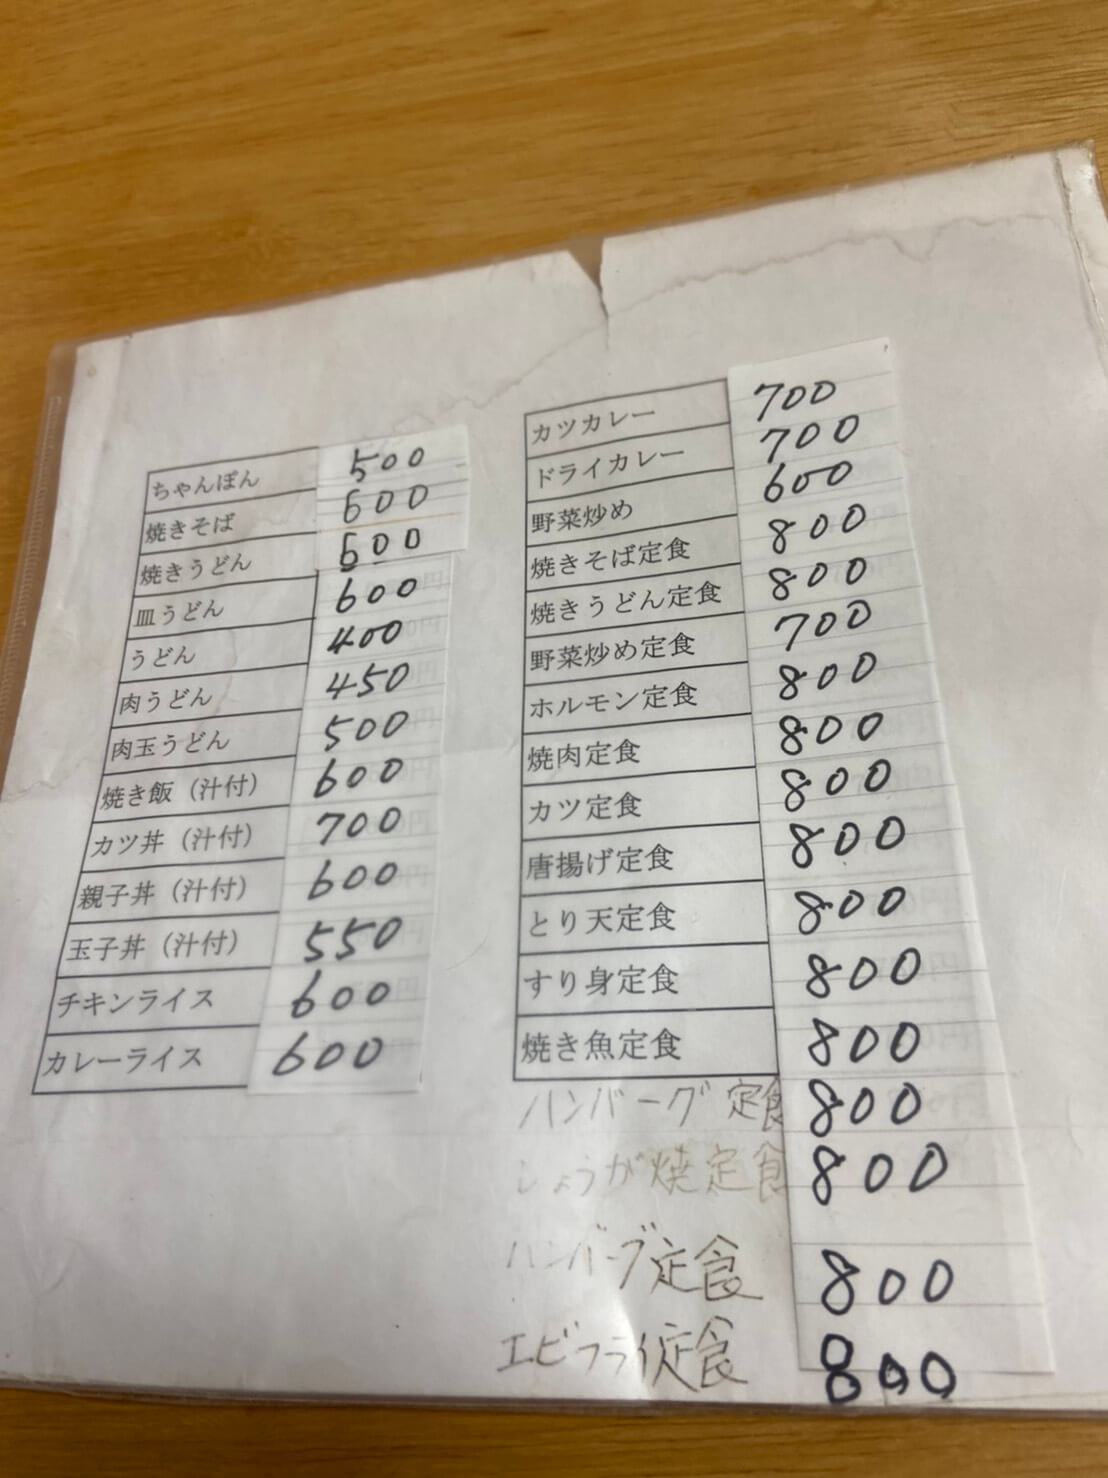 ちゃんぽん 500
焼きそば 600
焼きうどん 600
皿うどん 600
うどん 400
肉うどん 450
肉玉うどん 500
焼き飯（汁付） 600
カツ丼（汁付） 700
親子丼（汁付） 600
玉子丼（汁付） 550
チキンライス 600
カレーライス 600
カツカレー 700
ドライカレー 700
野菜炒め 600
焼きそば定食 800
焼きうどん定食 800
野菜炒め定食 700
ホルモン定食 800
焼肉定食 800
カツ定食 800
唐揚げ定食 800
とり天定食 800
すり身定食 800
焼き魚定食 800
ハンバーグ定食 800
しょうが焼定食 800
ハンバーグ定食 800
エビフライ定食 800